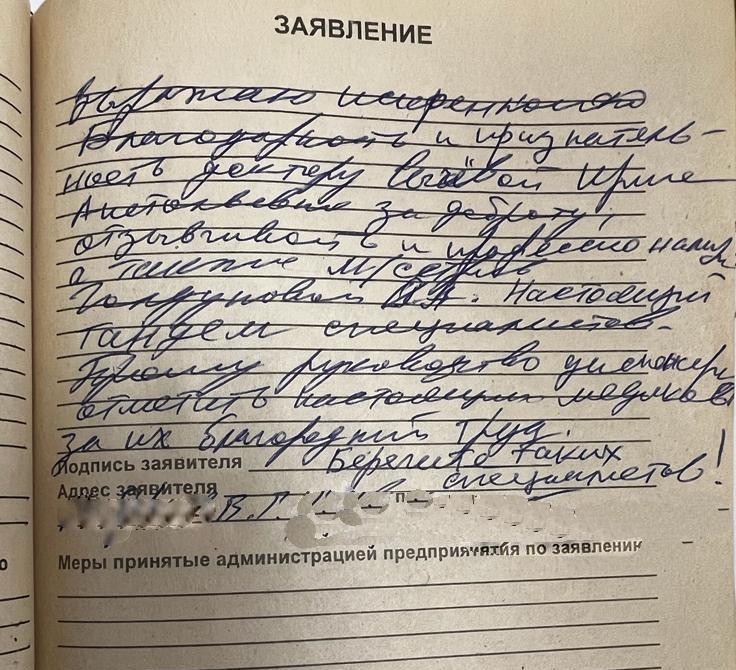 ЗАЯВЛЕНИЕ
Выражаю искреннюю
благодарность и признатель-
ность доктору Ирине
Анатольевне за доброту,
отзывчивость и профессионализм
а также м/сестре
Настоящий
тандем специалистов.
Прошу руководство
отметить настоящих медиков
за их благородний труд.
Подпись заявителя Берегите таких
Адрес заявителя специалистов!
В.Г.
Меры принятые администрацией предприятия по заявлению